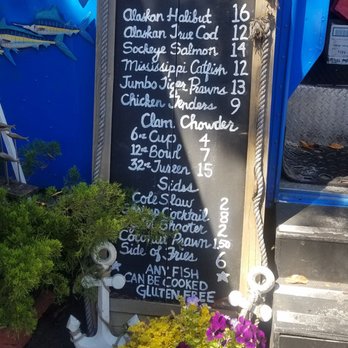 Alaskan Halibut 16
Alaskan True Cod 12
Sockeye Salmon 14
Mississippi Catfish 12
Jumbo Tiger Prawns 13
Chicken Tenders 9
Clam Chowder
6oz Cup 4
12oz Bowl 7
32oz Tureen 15
Sides
Cole Slaw 2
Cocktail 8
Shooter 2
Coconut Prawn 1.50
Side of Fries 6
ANY FISH
CAN BE COOKED
GLUTEN FREE